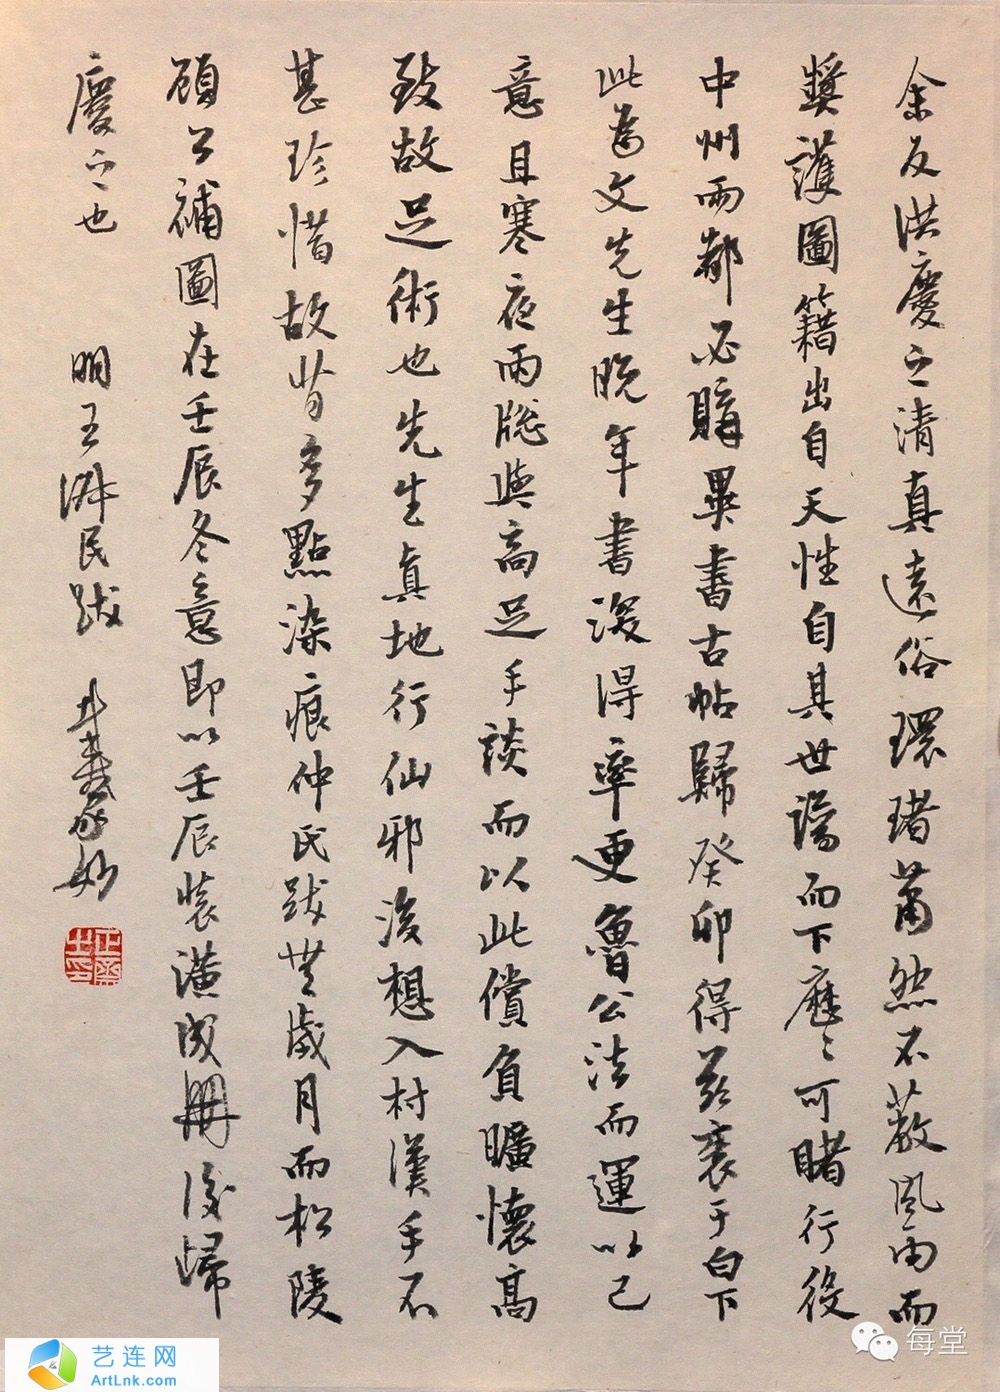 余友洪慶之清真遠俗環堵蕭然不蔽風雨而
獎護圖籍出自天性自其世謁而下歷歷可睹行役
中州兩都必購異書古帖歸癸卯得茲裹于白下
此為文先生晚年書深得率更魯公法而運以己
意且寒夜雨牕與高足手談而以此償負曠懷高
致故足術也先生真地行仙邪後想入村漢手不
甚珍惜故昔多點染痕仲民跋無歲月而松陵
顧公補圖在壬辰冬意即以壬辰裝潢成冊後歸
慶之也
明王民跋
正齋
艺连网
ArtLnk.com
每堂